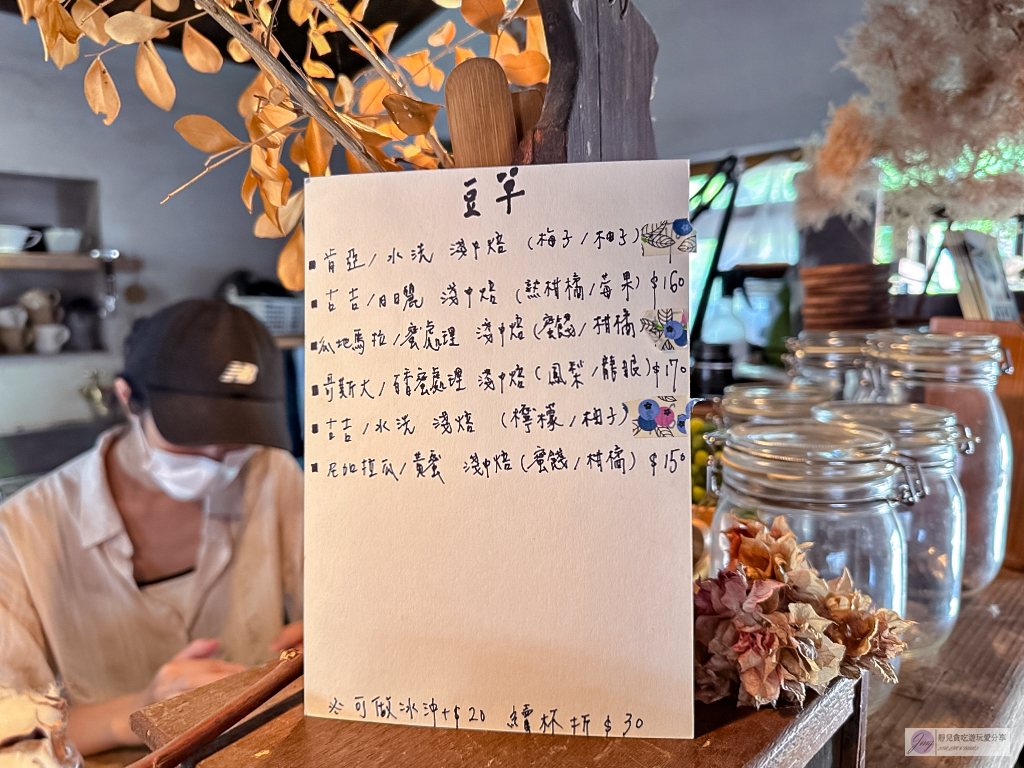 豆單
▪肯亞/水洗 淺中焙 (梅子/柚子)
▪吉吉/日曬 淺中焙 (熱柑橘/莓果) $160
▪瓜地馬拉/蜜處理 淺中焙(蜜餞/柑橘
▪哥斯大/百香蜜處理 淺中焙(鳳梨/龍眼) $170
▪吉吉/水洗 淺焙 (檸檬/柚子)
▪尼加拉瓜/黃蜜 淺中焙(蜜餞/柑橘) $150
※可做冰沖+$20 續杯折$30
靜兒貪吃遊玩愛分享